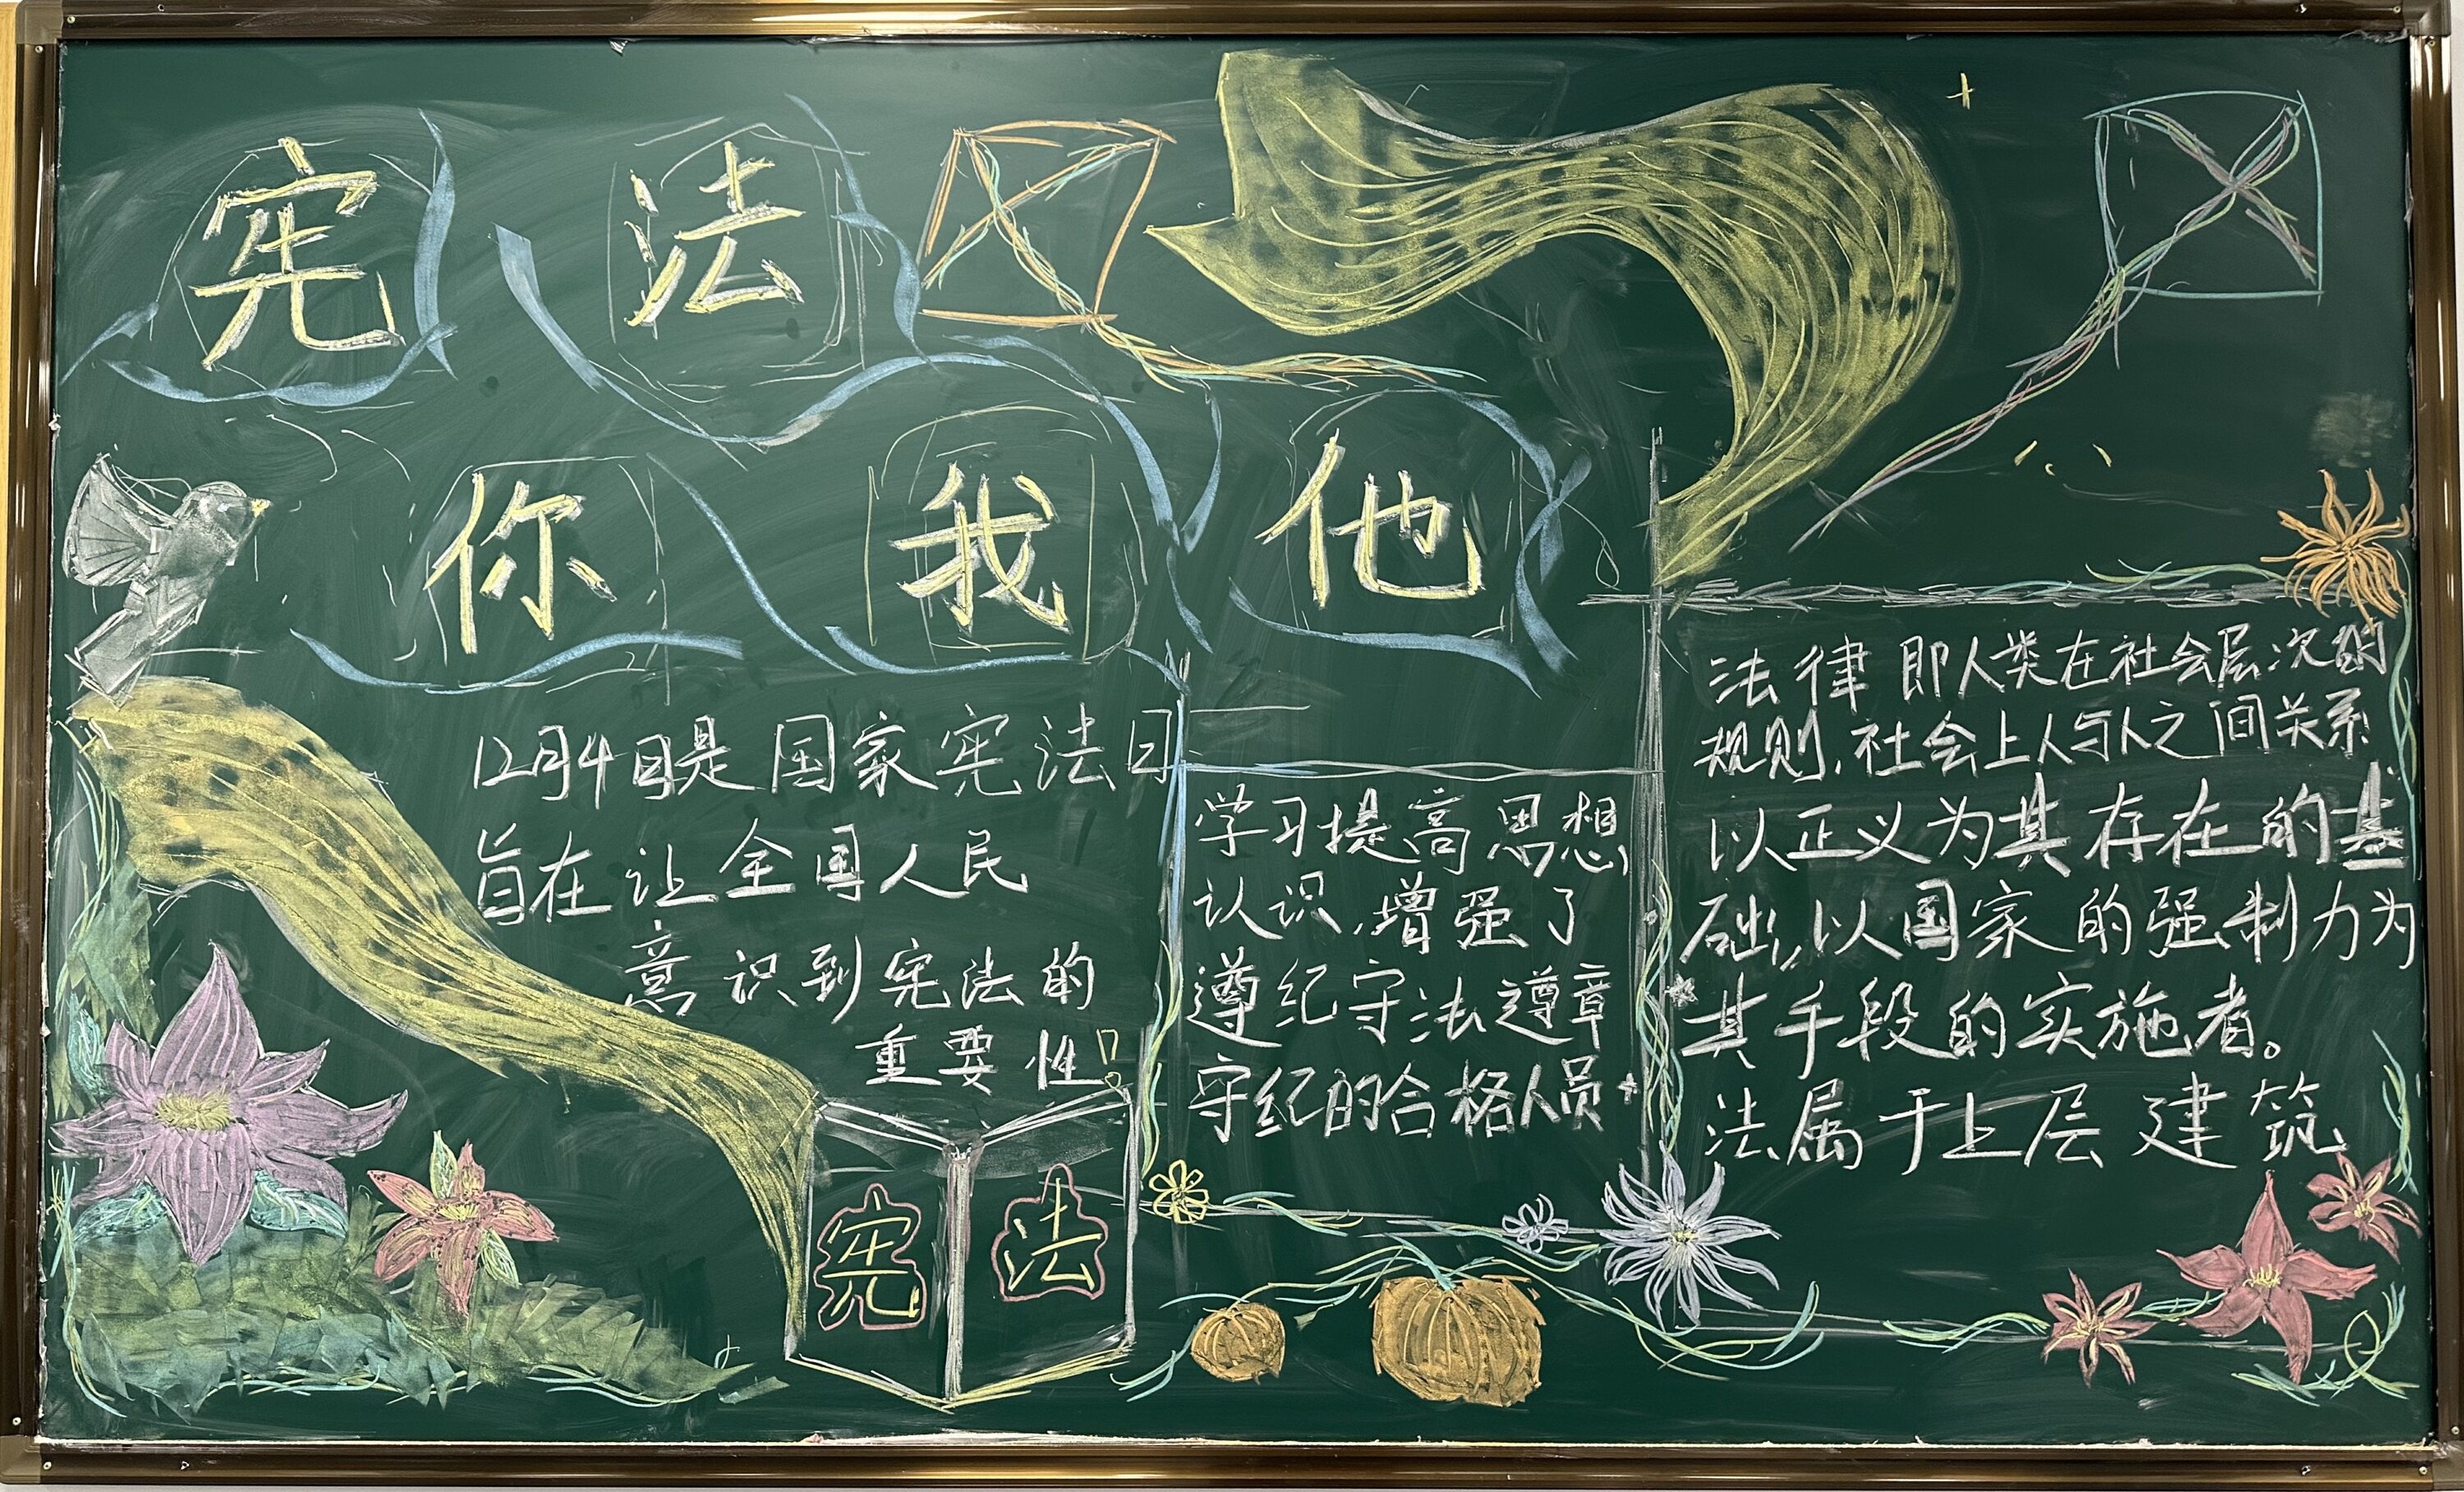 宪法
你我他
12月4日是国家宪法日
旨在让全国人民
意识到宪法的
重要性!
宪法
学习提高思想
认识,增强了
遵纪守法遵章
守纪的合格人员
法律即人类在社会层次的
规则,社会上人与人之间关系
以正义为其存在的基
础,以国家的强制力为
其手段的实施者。
法属于上层建筑